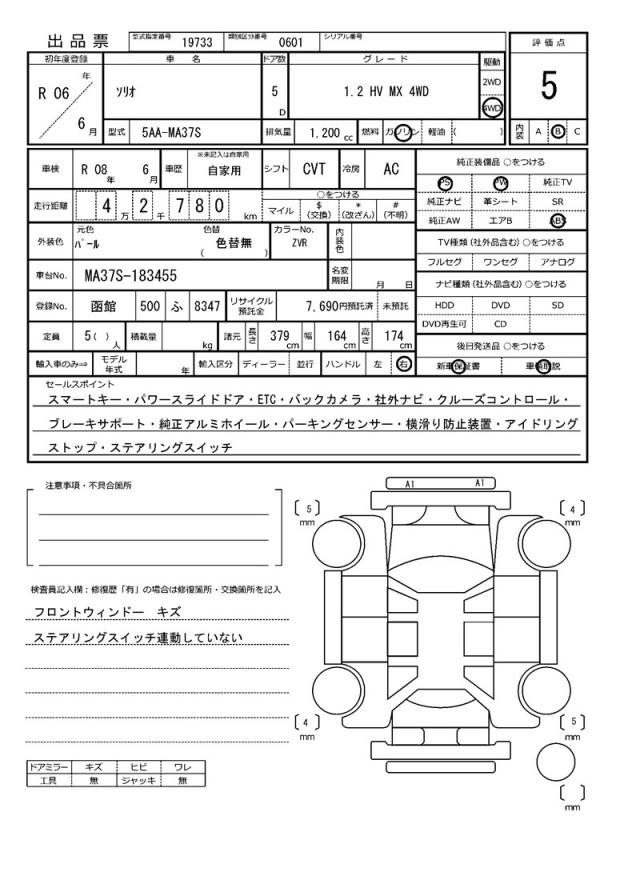 出品票 型式指定番号 19733 類別区分番号 0601 シリアル番号
初年度登録 車名 ドア数 グレード 駆動 評価点
R 06 年 6 月 ソリオ 5 D 1.2 HV MX 4WD 2WD 4WD 5
型式 5AA-MA37S 排気量 1.200 cc 燃料 ガソリン 軽油 ( ) 内装 A B C
車検 R 08 年 6 月 車歴 ※未記入は自家用 自家用 シフト CVT 冷房 AC
走行距離 4 万 2 千 7 8 0 km ○をつける
マイル $ (交換) * (改ざん) # (不明)
外装色 元色 パール 色替 ( 色替無 ) カラーNo. ZVR 内装色
車台No. MA37S-183455 名変期限 月 日
登録No. 函館 500 ふ 8347 リサイクル預託金 7,690円預託済 未預託
定員 5( ) 人 積載量 kg 諸元 長さ 379 cm 幅 164 cm 高さ 174 cm
輸入車のみ⇒ モデル年式 年 輸入区分 ディーラー 並行 ハンドル 左 右
純正装備品 ○をつける
PS PW 純正TV
純正ナビ 革シート SR
純正AW エアB ABS
TV種類 (社外品含む) ○をつける
フルセグ ワンセグ アナログ
ナビ種類 (社外品含む) ○をつける
HDD DVD SD
DVD再生可 CD
後日発送品 ○をつける
新車保証書 車輌取説
セールスポイント
スマートキー・パワースライドドア・ETC・バックカメラ・社外ナビ・クルーズコントロール・
ブレーキサポート・純正アルミホイール・パーキングセンサー・横滑り防止装置・アイドリング
ストップ・ステアリングスイッチ
注意事項・不具合箇所
検査員記入欄：修復歴「有」の場合は修復箇所・交換箇所を記入
フロントウィンドー キズ
ステアリングスイッチ連動していない
ドアミラー キズ ヒビ ワレ
工具 無 ジャッキ 無
A1 A1
[ 5 ] mm [ 4 ] mm
[ 4 ] mm [ 5 ] mm
[ ] mm